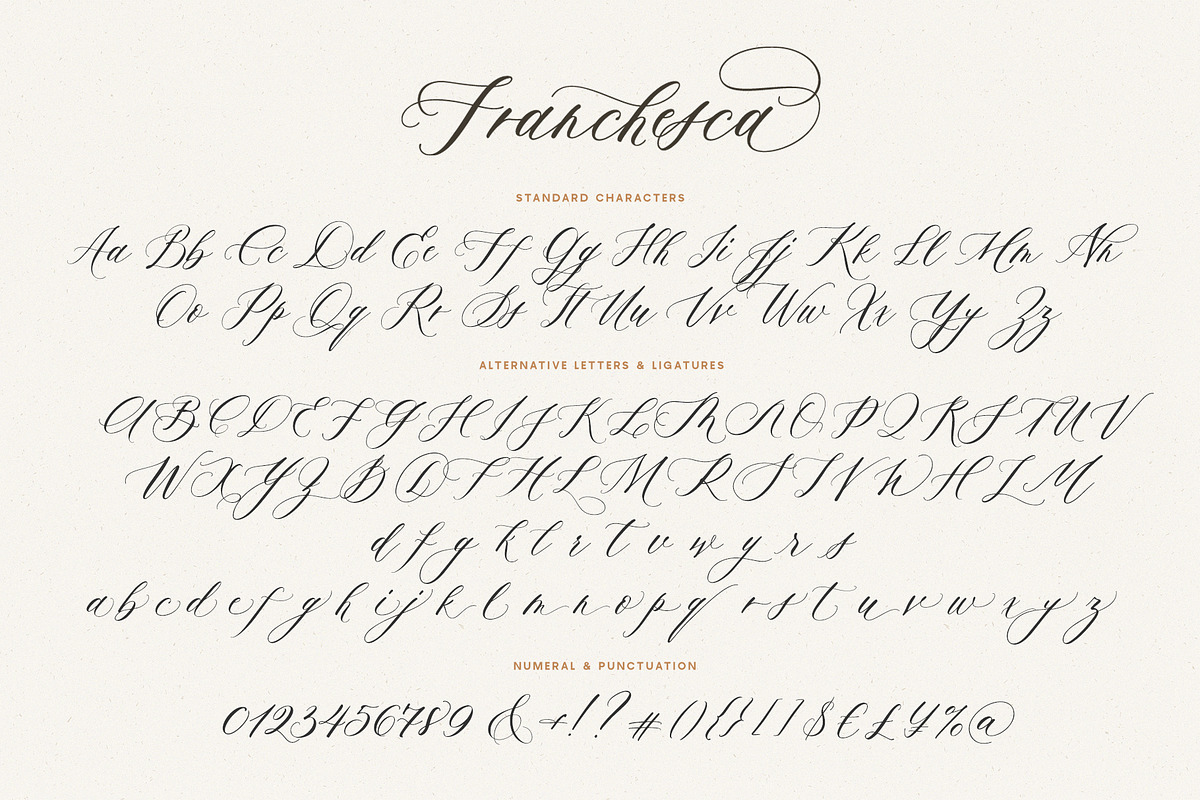 Franchesca
STANDARD CHARACTERS
Aa Bb Cc Dd Ee Ff Gg Hh Ii Jj Kk Ll Mm Nn
Oo Pp Qq Rr Ss Tt Uu Vv Ww Xx Yy Zz
ALTERNATIVE LETTERS & LIGATURES
A B C D E F G H I J K L Th N O P Q R S T U V
W X Y Z B D F H L M R S T V W H L M
d f g k l r t v w y r s
a b c d e f g h i j k l m n o p q r s t u v w x y z
NUMERAL & PUNCTUATION
0123456789 & + ! ? # ( ) { } [ ] $ € £ ¥ % @